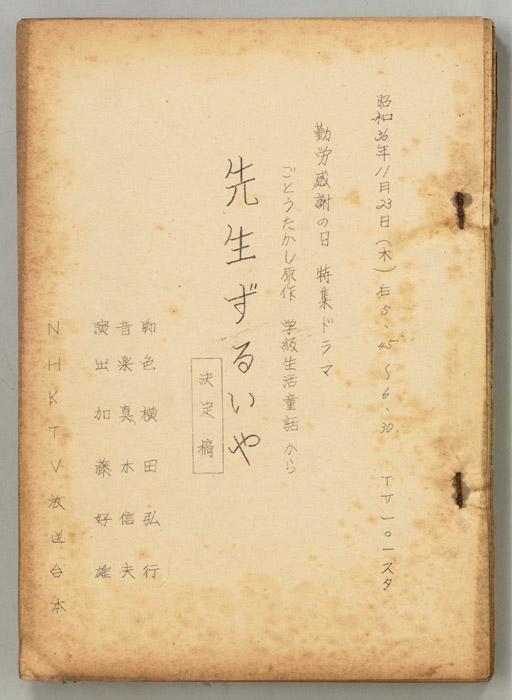 昭和36年11月23日(木)右5、45～6、30 TT一〇一スタ
勤労感謝の日 特集ドラマ
ごとうたかし原作 学級生活童話から
先生ずるいや
決定稿
脚色 横田弘行
音楽 真木信夫
演出 加藤好雄
NHKTV放送台本